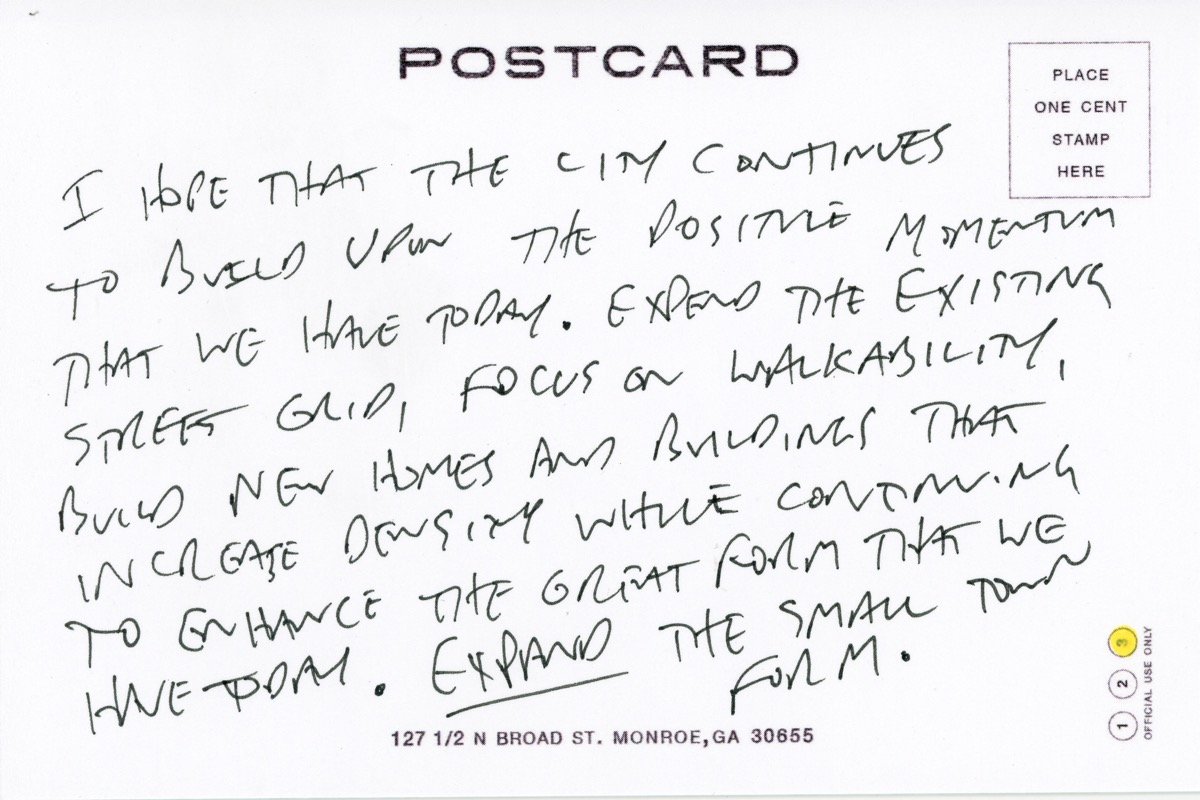 POSTCARD
PLACE
ONE CENT
STAMP
HERE
I HOPE THAT THE CITY CONTINUES
TO BUILD UPON THE POSITIVE MOMENTUM
THAT WE HAVE TODAY. EXPEND THE EXISTING
STREET GRID, FOCUS ON WALKABILITY,
BUILD NEW HOMES AND BUILDINGS THAT
INCREASE DENSITY WHILE CONTINUING
TO ENHANCE THE GREAT FORM THAT WE
HAVE TODAY. EXPAND THE SMALL TOWN
FORM.
127 1/2 N BROAD ST. MONROE,GA 30655
1 2 3
OFFICIAL USE ONLY